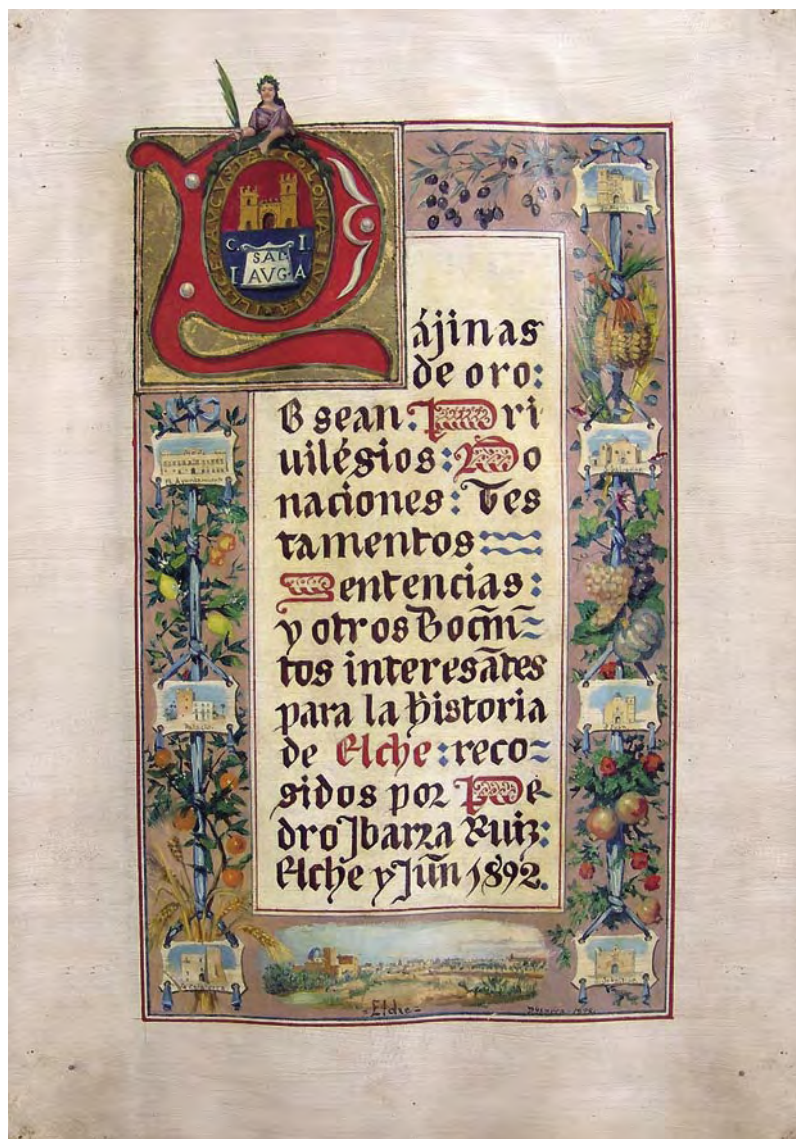 COLONIA IVLIA ILICE AVGVSTA
C. I.
SAL
I AVG A
Pájinas
de oro:
O sean: Pri
uilégios: Do
naciones: Tes
tamentos
Sentencias:
y otros Docm̃=
tos interesãtes
para la historia
de Elche: reco=
gidos por Pe
dro Ibarra Ruiz:
Elche y Jũn 1892.
Ayuntamiento
S. Salvador
Palacio
=Elche=